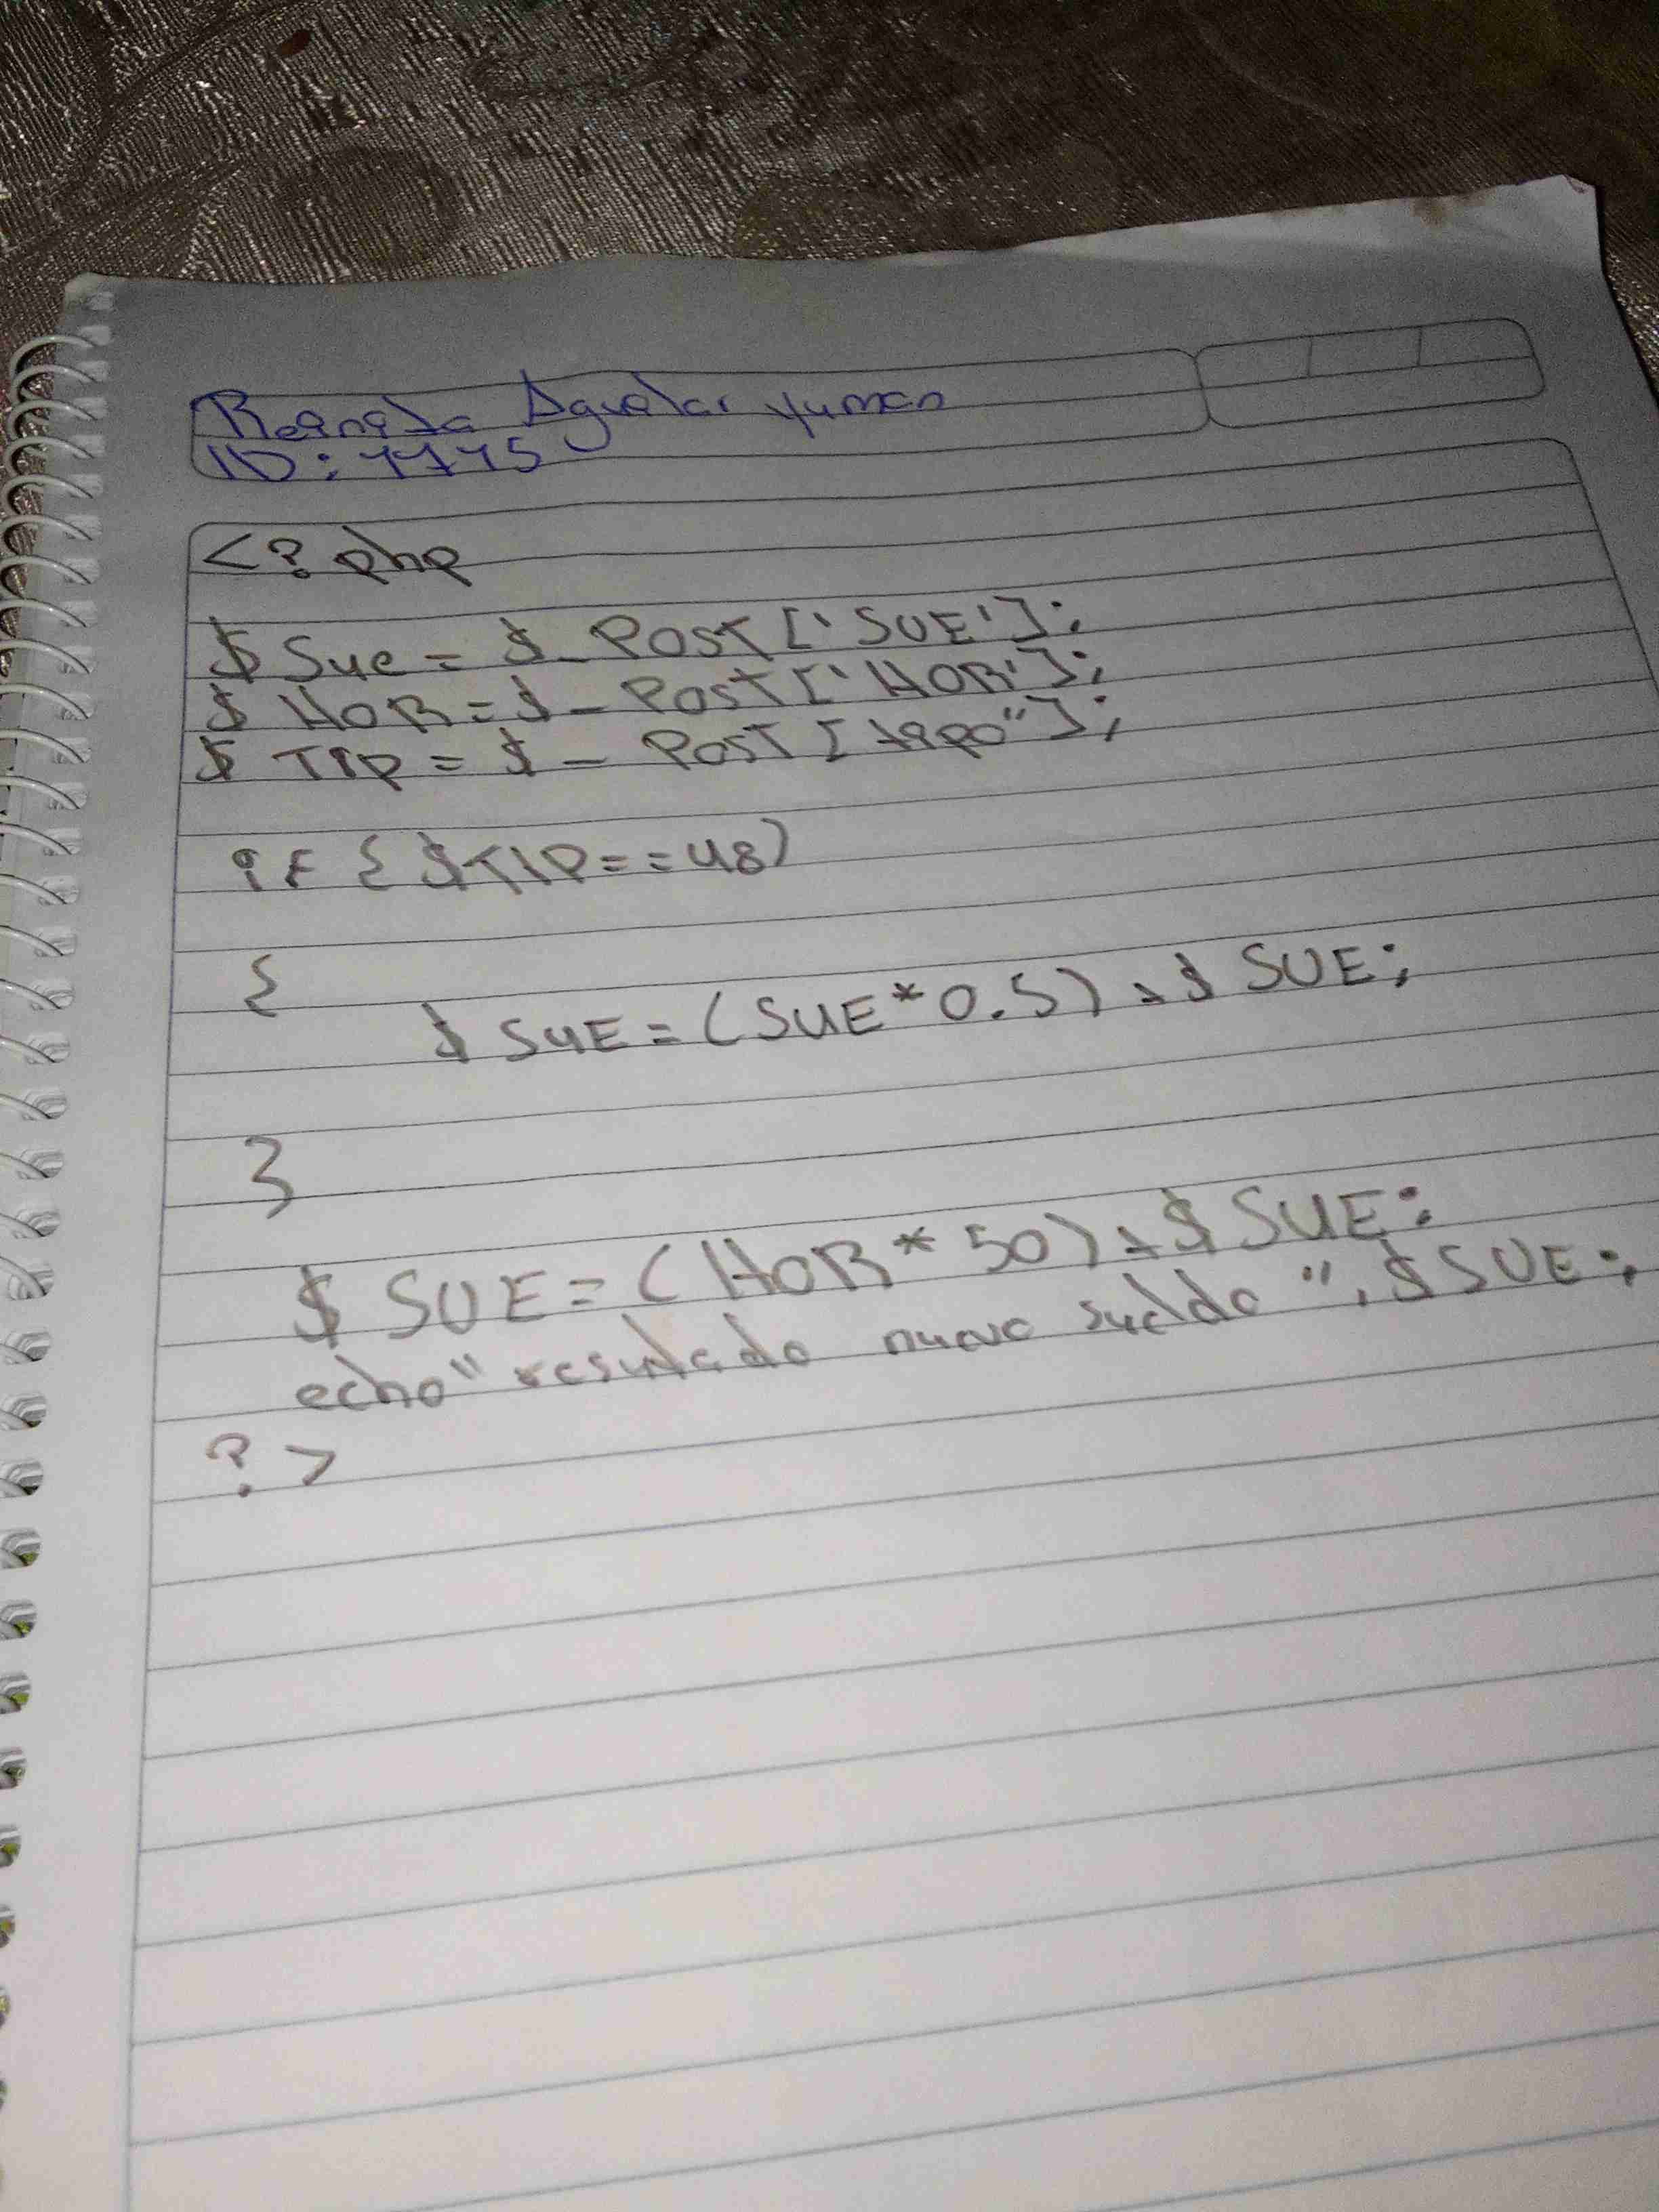 Reinalda Aguelar yuman
ID: 7775
<? php
$ Sue = $_ POST ['SUE'];
$ HOR = $ _ POST ['HOR'];
$ TIP = $ _ POST [ tipo"];
if { $TIP==48)
{
$ SUE = (SUE*0.5) + $ SUE;
}
$ SUE = (HOR * 50) + $ SUE;
echo" resultado nuevo sueldo ", $ SUE;
? >